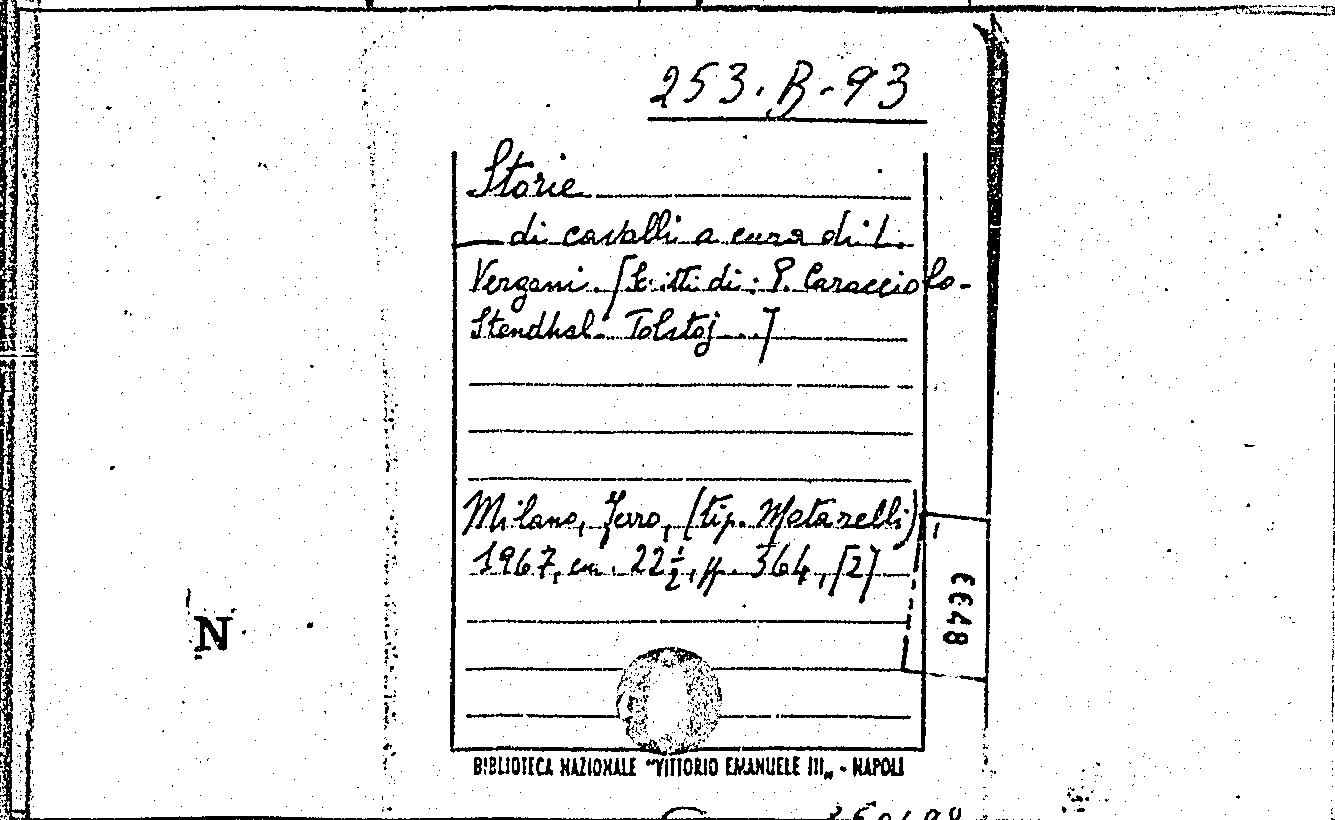 253.B-93
Storie
di cavalli a cura di L.
Vergani. [Scritti di: P. Caracciolo-
Stendhal. Tolstoj...]
Milano, (tip. Matarelli)
1967, cm. 22½, pp. 364, [2]
N
BIBLIOTECA NAZIONALE "VITTORIO EMANUELE III„ - NAPOLI